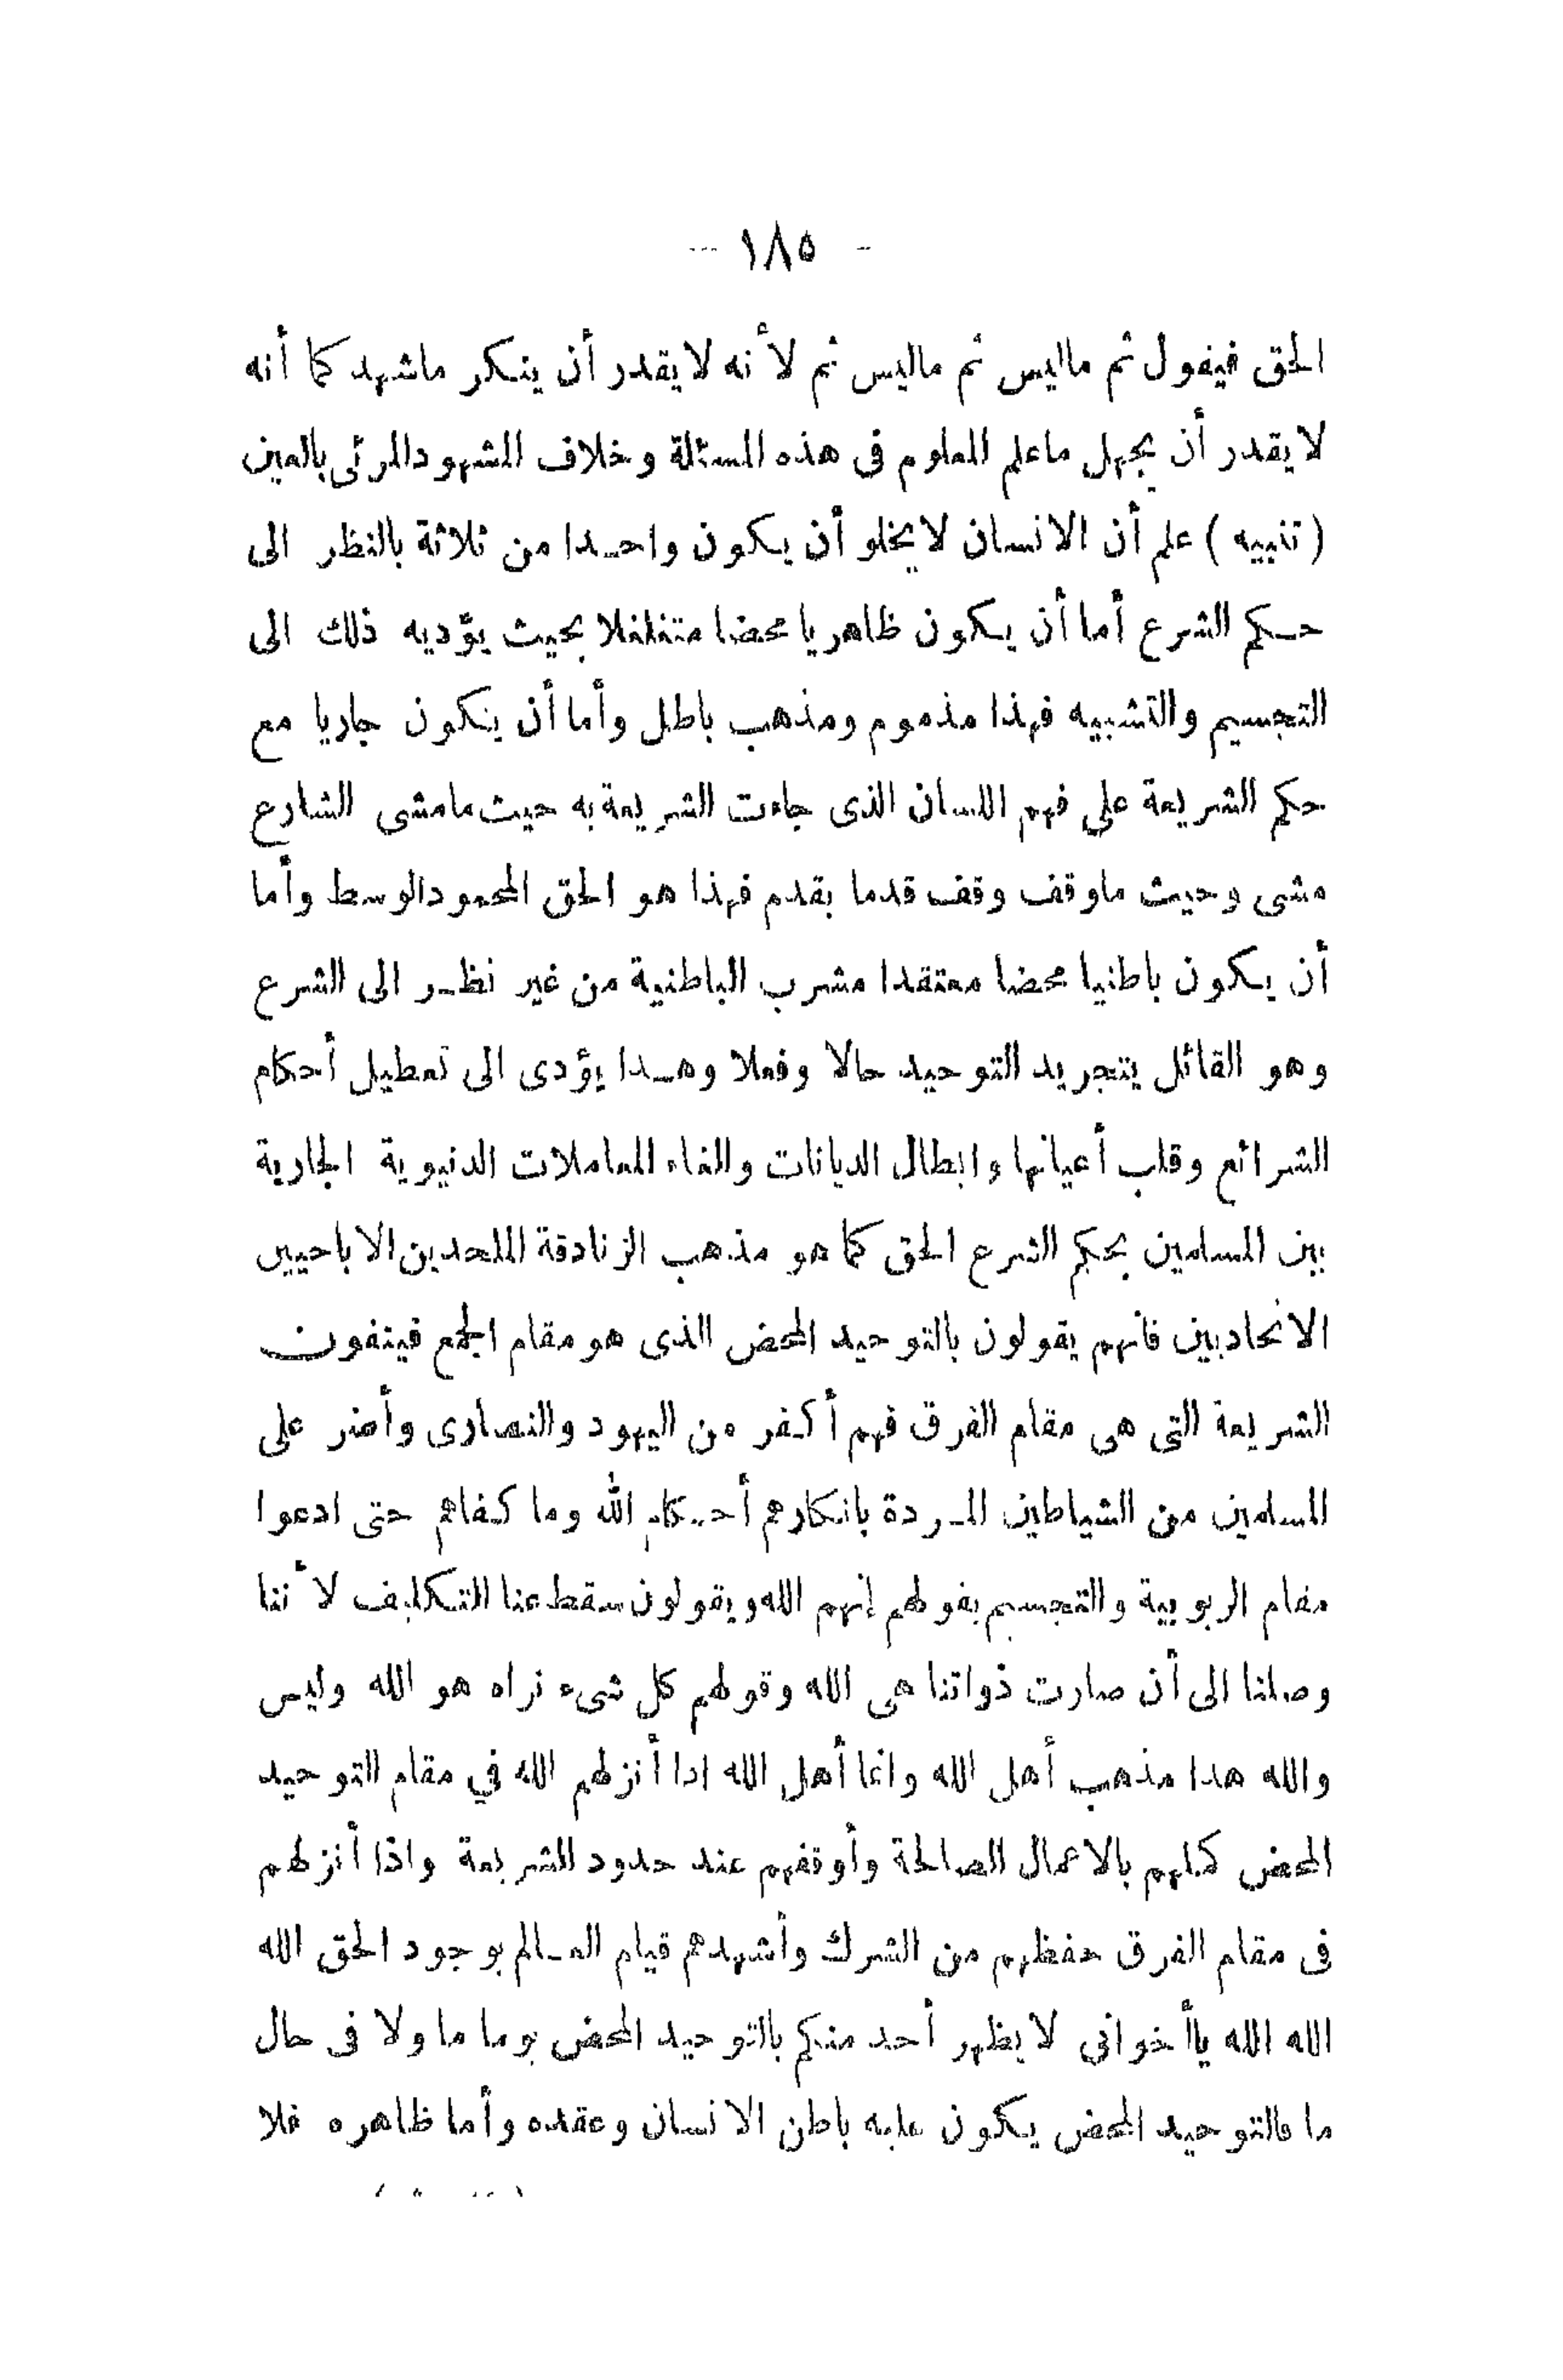 - ١٨٥ -
الحق فيقول ثم ماليس ثم ماليس ثم لأنه لايقدر أن ينكر ماشهد كما أنه
لايقدر أن يجهل ماعلم المعلوم فى هذه المسئلة وخلاف المشهود المرئى بالعين
( تنبيه ) علم أن الانسان لايخلو أن يكون واحدا من ثلاثة بالنظر الى
حكم الشرع أما أن يكون ظاهريا محضا متغلغلا بحيث يؤديه ذلك الى
التجسيم والتشبيه فهذا مذموم ومذهب باطل وأما أن يكون جاريا مع
حكم الشريعة على فهم اللسان الذى جاءت الشريعة به حيث مامشى الشارع
مشى وحيث ماوقف وقف قدما بقدم فهذا هو الحق المحمود الوسط وأما
أن يكون باطنيا محضا معتقدا مشرب الباطنية من غير نظر الى الشرع
وهو القائل بتجريد التوحيد حالا وفعلا وهدا يؤدى الى تعطيل أحكام
الشرائع وقلب أعيانها وابطال الديانات والغاء المعاملات الدنيوية الجارية
بين المسلمين بحكم الشرع الحق كما هو مذهب الزنادقة الملحدين الاباحيين
الاتحاديين فانهم يقولون بالتوحيد المحض الذى هو مقام الجمع فينفون
الشريعة التى هى مقام الفرق فهم أكفر من اليهود والنصارى وأضر على
المسلمين من الشياطين المردة بانكارهم أحكام الله وما كفاهم حتى ادعوا
مقام الربوبية والتجسيم بقولهم إنهم الله ويقولون سقط عنا التكليف لأننا
وصلنا الى أن صارت ذواتنا هى الله وقولهم كل شىء نراه هو الله وليس
والله هدا مذهب أهل الله وانما أهل الله ادا أنزلهم الله في مقام التوحيد
المحض كملهم بالاعمال الصالحة وأوقفهم عند حدود الشريعة واذا أنزلهم
فى مقام الفرق حفظهم من الشرك وأشهدهم قيام العالم بوجود الحق الله
الله الله ياأخوانى لايظهر أحد منكم بالتوحيد المحض يوما ما ولا فى حال
ما فالتوحيد المحض يكون عليه باطن الانسان وعقده وأما ظاهره فلا